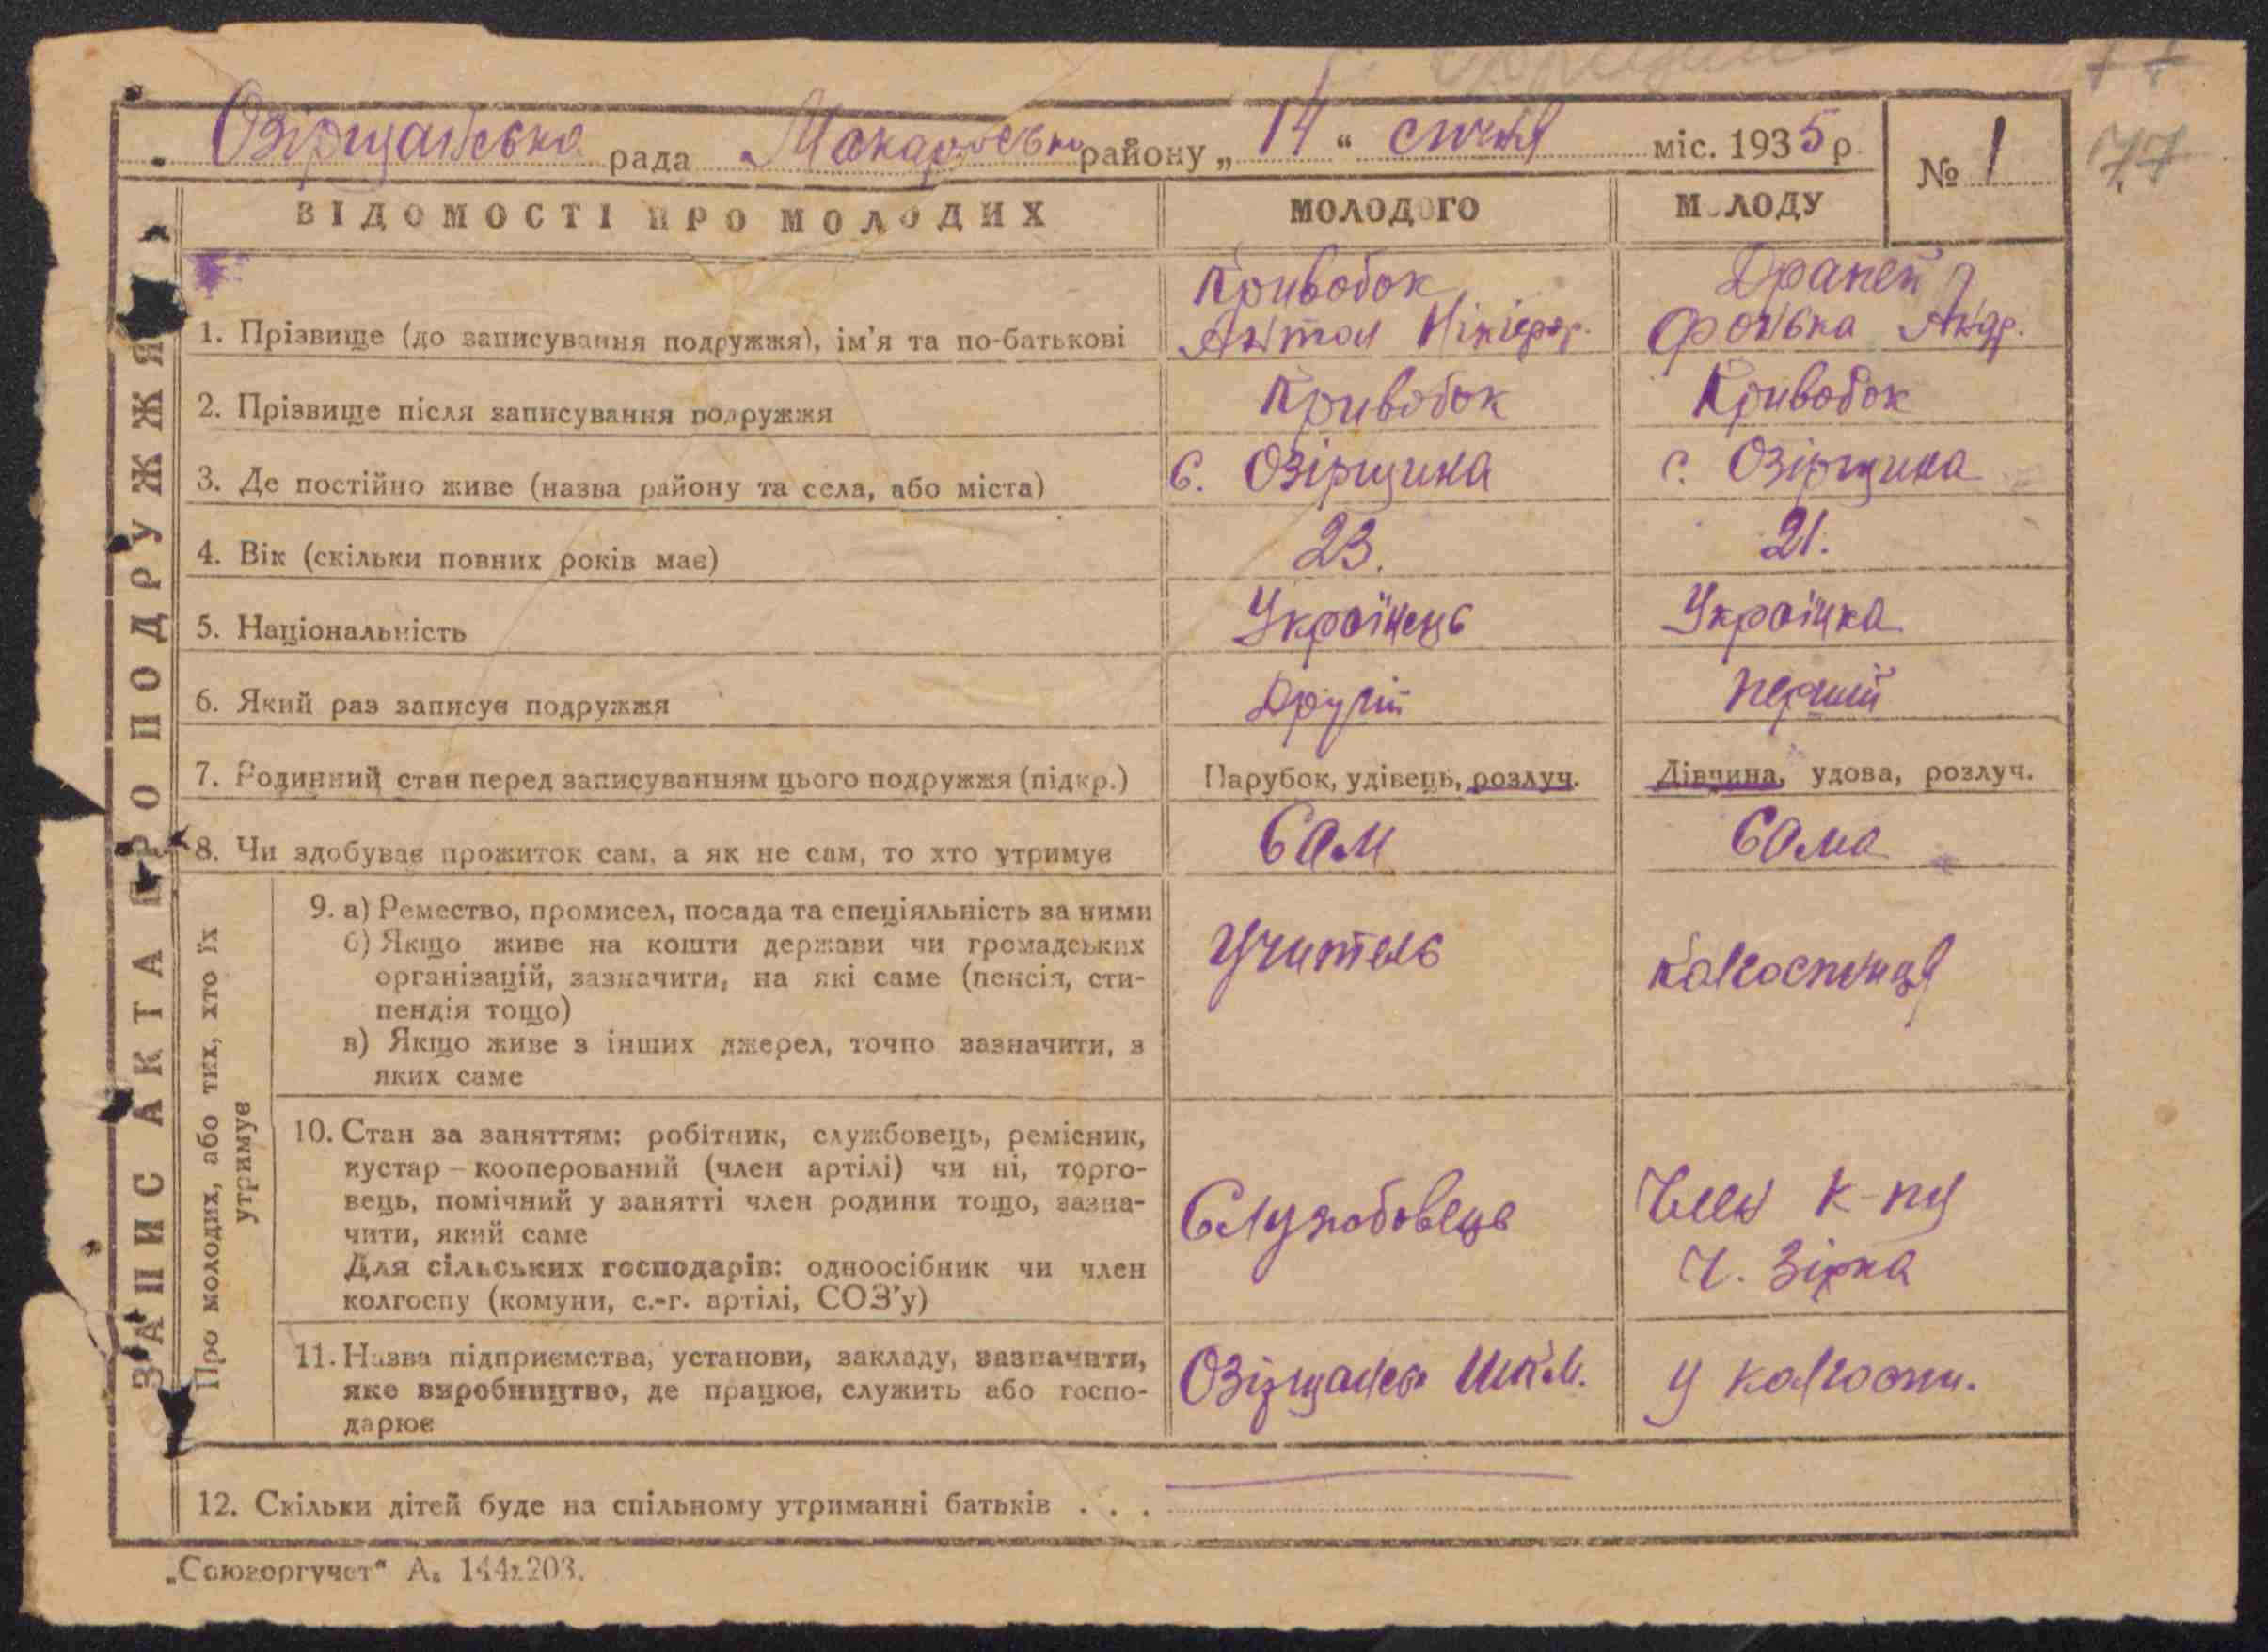 Озірщанська рада Макарівсько району „ 14 “ січня міс. 1935 р. № 1
77
ВІДОМОСТІ ПРО МОЛОДИХ МОЛОДОГО МОЛОДУ
ЗАПИС АКТА ПРО ПОДРУЖЖЯ
1. Прізвище (до записування подружжя), ім’я та по-батькові
Кривобок
Антон Нікіфор.
Драпей
Фонька Андр.
2. Прізвище після записування подружжя Кривобок Кривобок
3. Де постійно живе (назва району та села, або міста) с. Озірщина с. Озірщина
4. Вік (скільки повних років має) 23. 21.
5. Національність Українець Українка
6. Який раз записує подружжя Другій Перший
7. Родинний стан перед записуванням цього подружжя (підкр.) Парубок, удівець, розлуч. Дівчина, удова, розлуч.
8. Чи здобуває прожиток сам, а як не сам, то хто утримує Сам Сама
Про молодих, або тих, хто їх
утримує
9. а) Ремество, промисел, посада та спеціяльність за ними
б) Якщо живе на кошти держави чи громадських
організацій, зазначити, на які саме (пенсія, сти-
пендія тощо)
в) Якщо живе з інших джерел, точно зазначити, з
яких саме
Учитель
Колгоспниця
10. Стан за заняттям: робітник, службовець, ремісник,
кустар – кооперований (член артілі) чи ні, торго-
вець, помічний у занятті член родини тощо, зазна-
чити, який саме
Для сільських господарів: одноосібник чи член
колгоспу (комуни, с.-г. артілі, СОЗ’у)
Службовець
Член к-пу
Ч. Зірка
11. Назва підприємства, установи, закладу, зазначити,
яке виробництво, де працює, служить або госпо-
дарює
Озірщансь Шкл.
У колгосп.
12. Скільки дітей буде на спільному утриманні батьків . . .
„Союзоргучет“